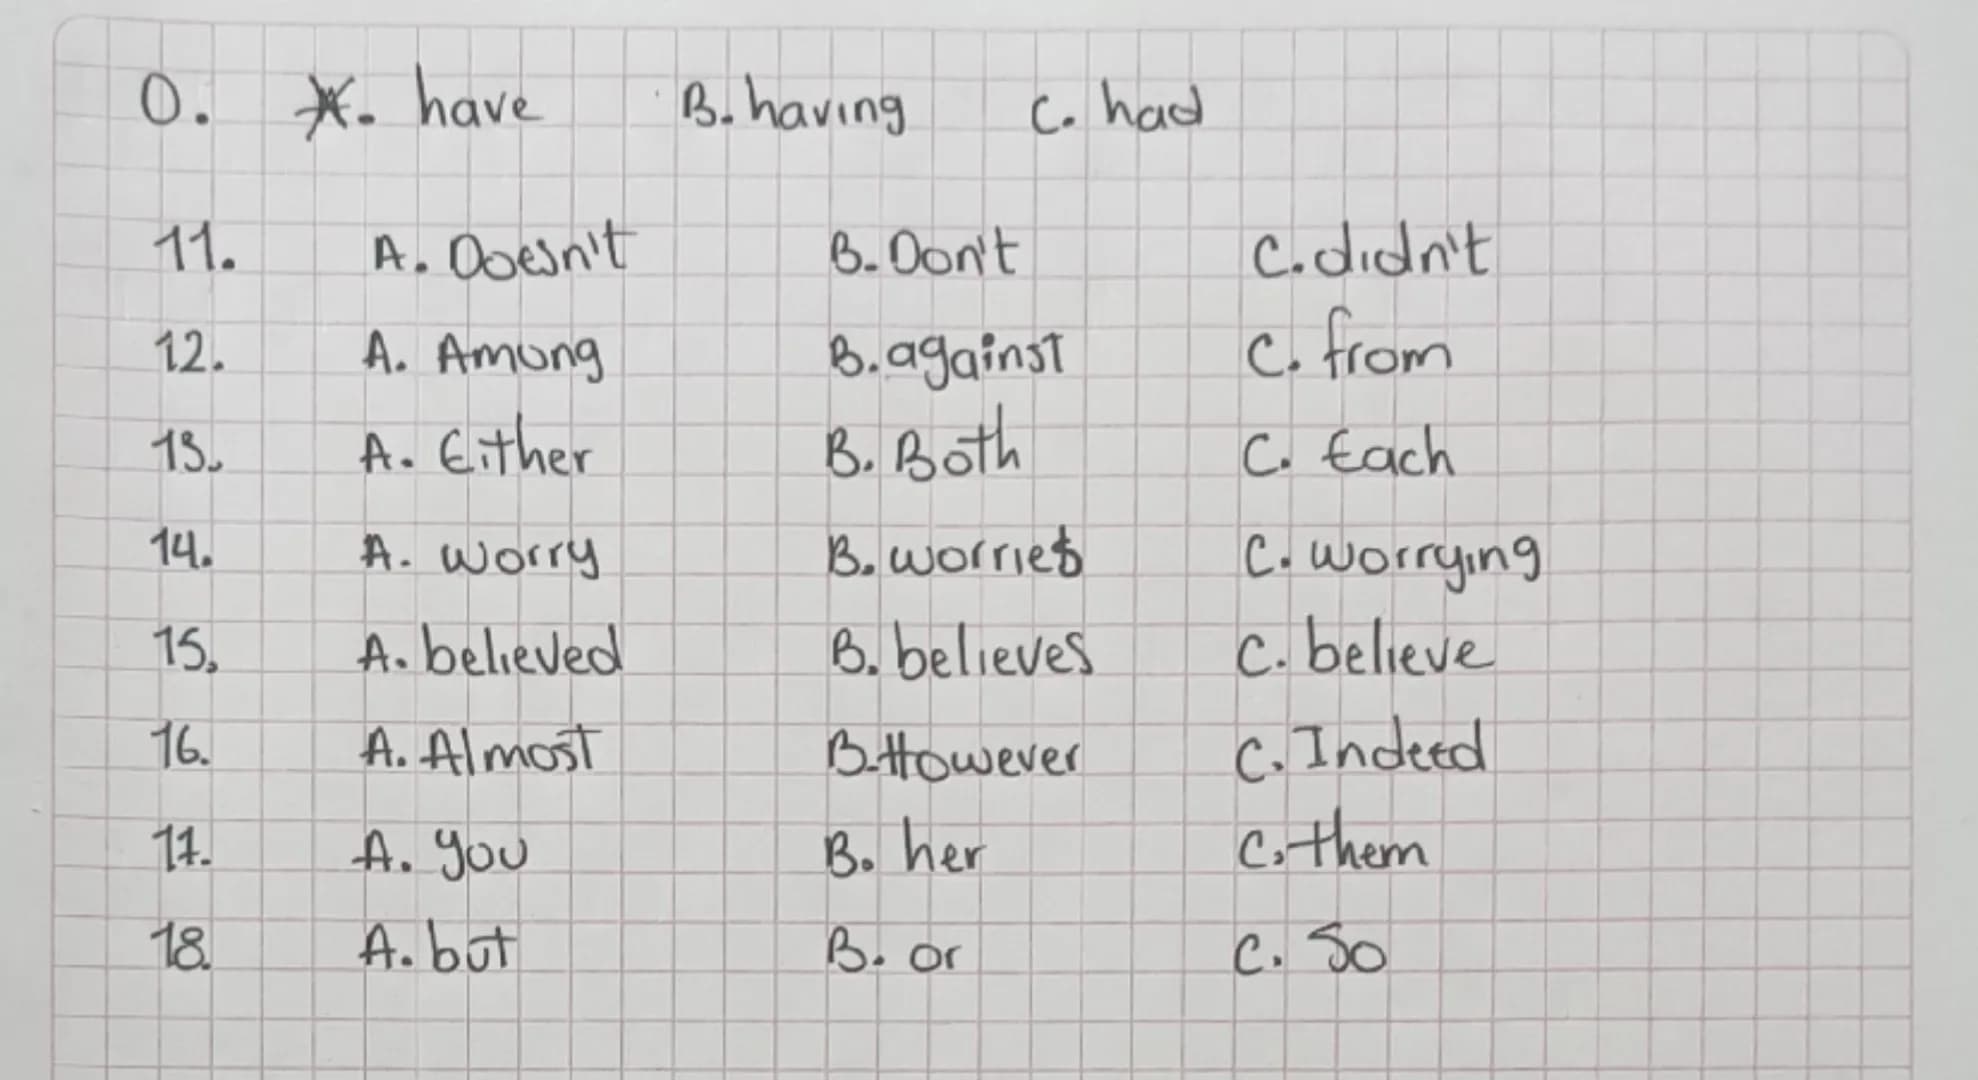 0. A. have B. having C. had
11. A. Doesn't B. Don't C. didn't
12. A. Among B. against C. from
13. A. Either B. Both C. Each
14. A. worry B. worries C. worrying
15. A. believed B. believes C. believe
16. A. Almost B. However C. Indeed
17. A. you B. her C. them
18. A. but B. or C. So